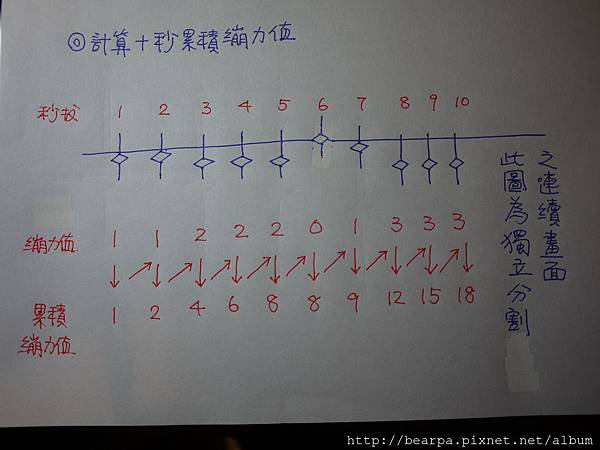 ◎計算十秒累積繃力值
秒拔 1 2 3 4 5 6 7 8 9 10
繃力值 1 1 2 2 2 0 1 3 3 3
累積
繃力值 1 2 4 6 8 8 9 12 15 18
此圖為獨立分割
之連續畫面
http://bearpa.pixnet.net/album